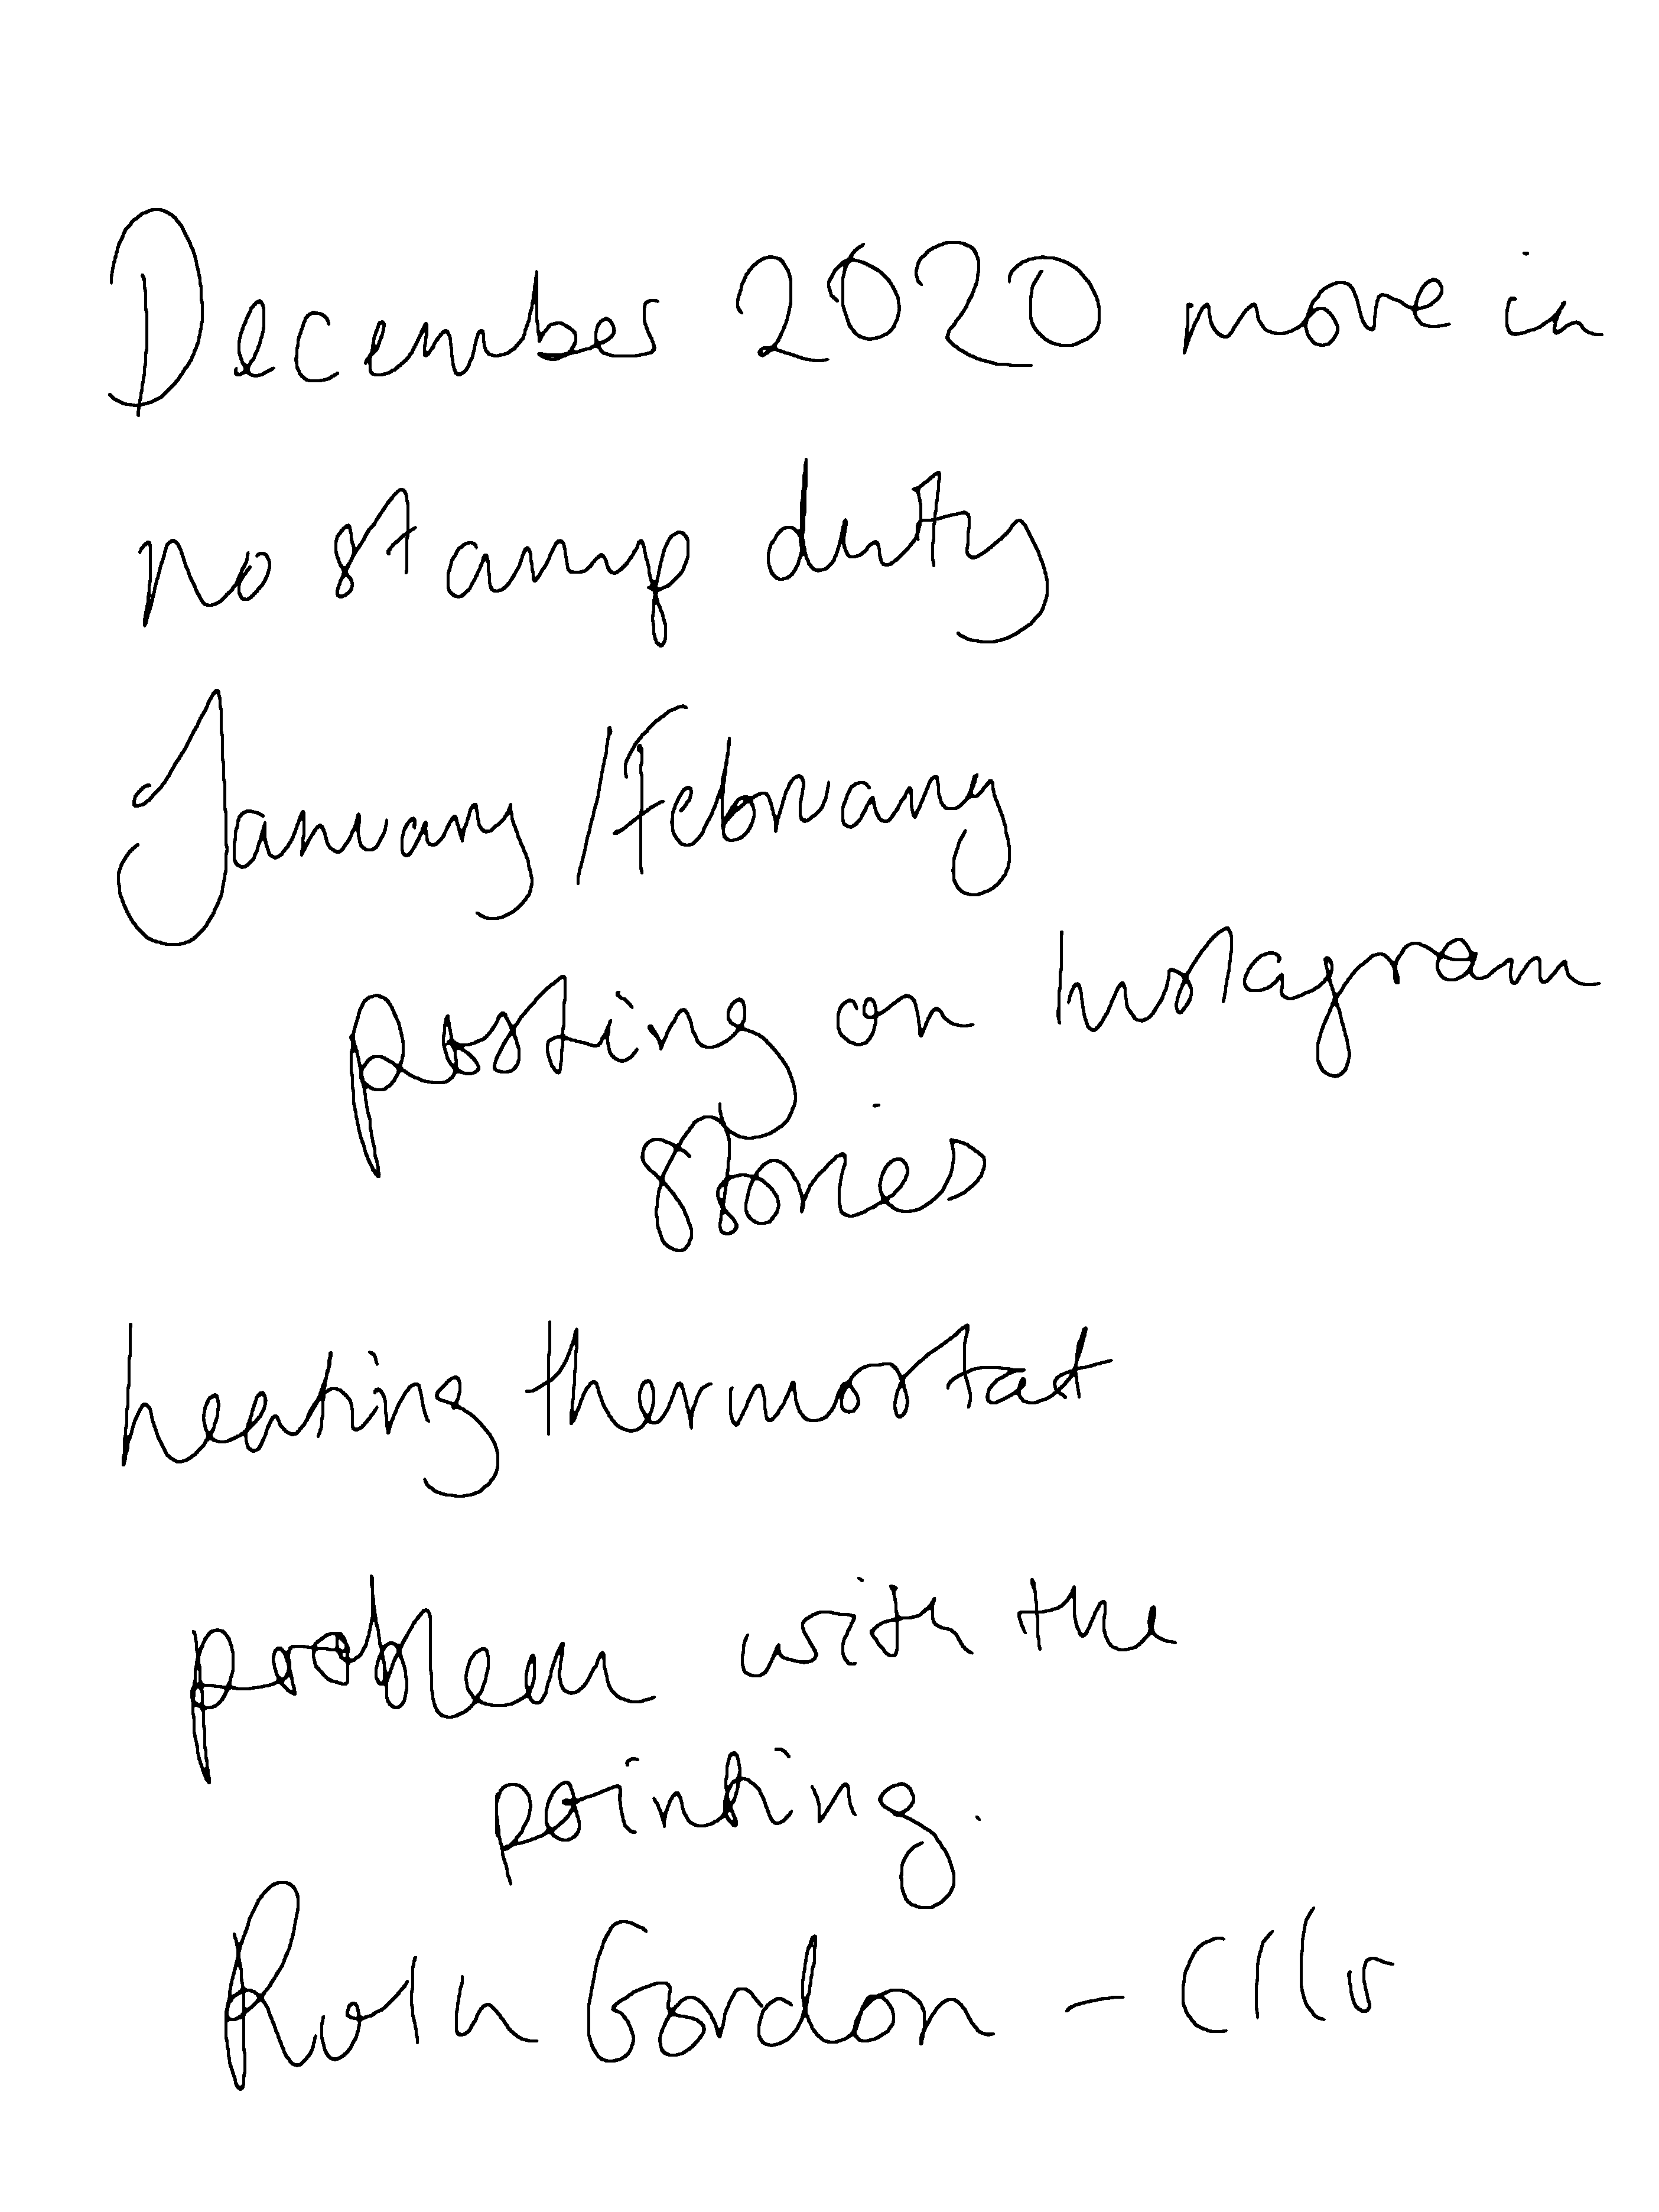 December 2020 move in
no stamp duty
January / February
posting on Instagram
stories
heating thermostat
problem with the
painting.
Gordon - Cllr